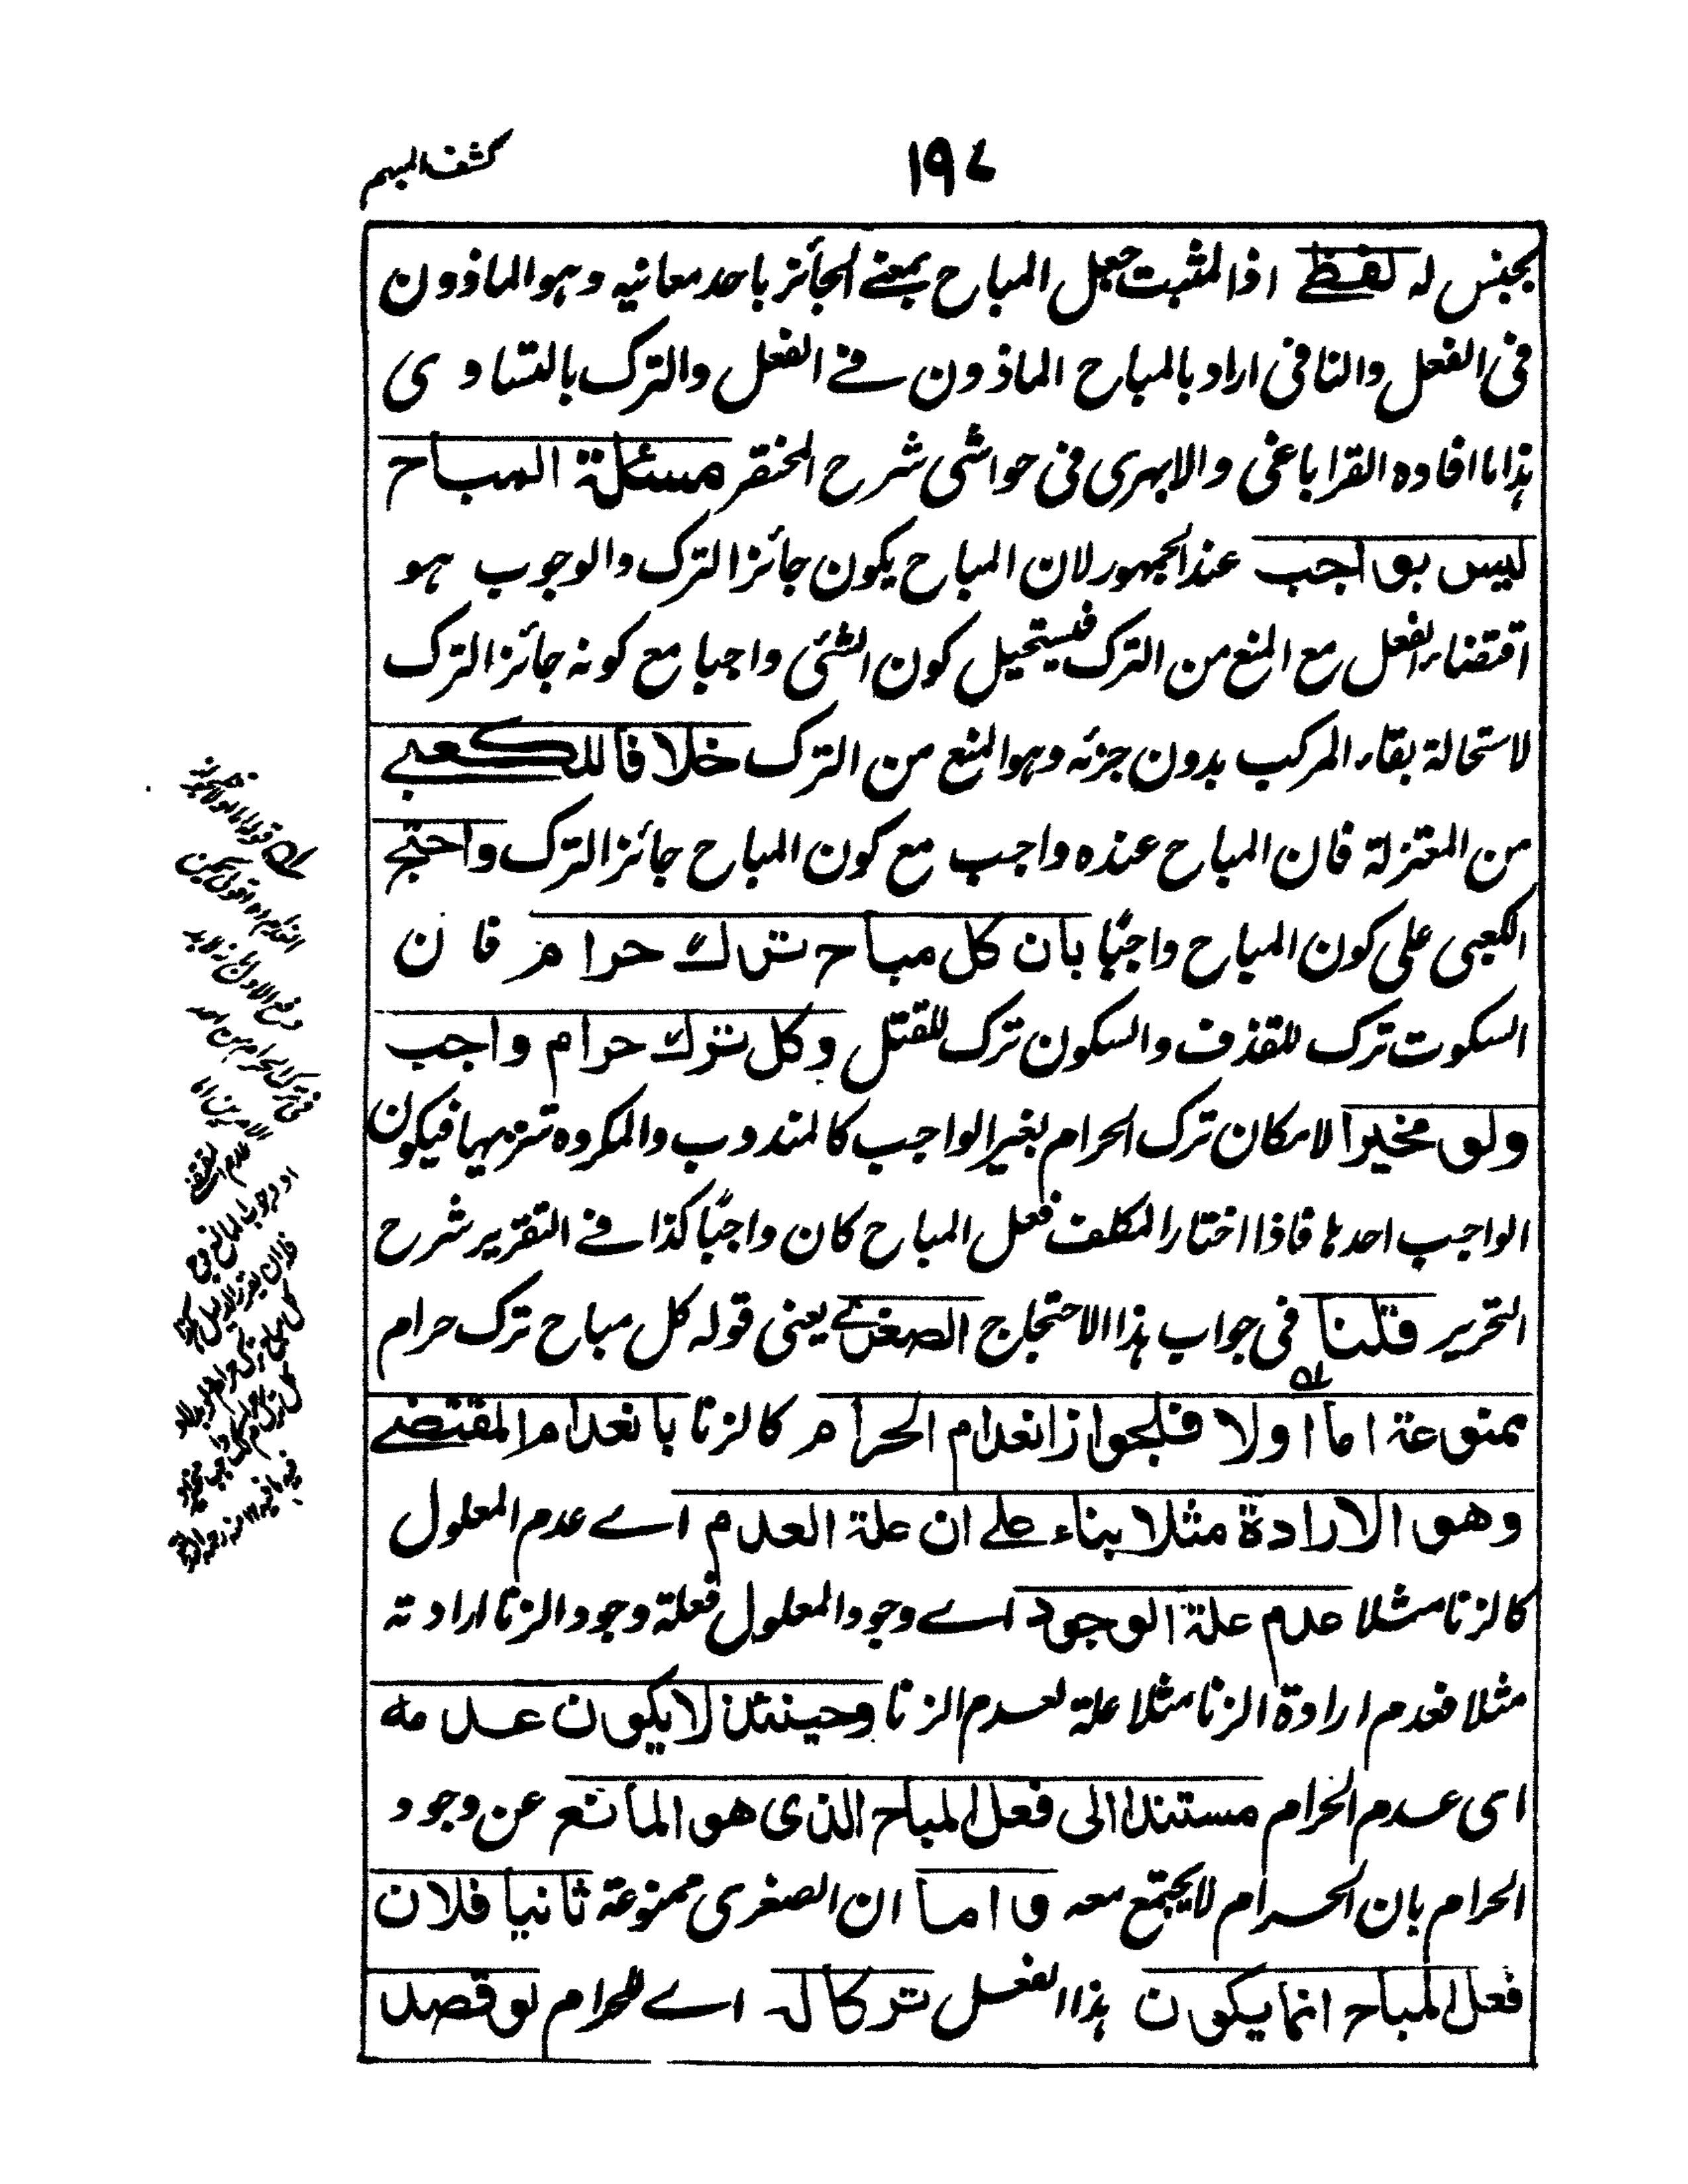 ١٩٧
كشف المبهم
بجنس له لفظي اذ المثبت جعل المباح بمعنے الجائز باحد معانيه وهو الماذون
فى الفعل والنافى اراد بالمباح الماذون فے الفعل والترك بالتساوى
هذا ما افاده القراباغى والابهرى فى حواشى شرح المختصر مسئلة المباح
ليس بواجب عند الجمهور لان المباح يكون جائز الترك والوجوب هو
اقتضاء الفعل مع المنع من الترك فيستحيل كون الشئ واجبا مع كونه جائز الترك
لاستحالة بقاء المركب بدون جزئه وهو المنع من الترك خلافا للكعبے
من المعتزلة فان المباح عنده واجب مع كون المباح جائز الترك واحتج
الكعبى على كون المباح واجبًا بان كل مباح ترك حرام فان
السكوت ترك للقذف والسكون ترك للقتل وكل ترك حرام واجب
ولو مخيرا لامكان ترك الحرام بغير الواجب كالمندوب والمكروه تنزيها فيكون
الواجب احدها فاذا اختار المكلف فعل المباح كان واجبًا كذا فے التقرير شرح
التحرير قلنا فى جواب هذا الاحتجاج الصغرے يعنى قوله كل مباح ترك حرام
ممنوعة اما اولا فلجواز انعدام الحرام كالزنا بانعدام المقتضے
وهو الارادة مثلا بناء علے ان علة العدم اے عدم المعلول
كالزنا مثلا عدم علة الوجود اے وجود المعلول فعلة وجود الزنا ارادته
مثلا فعدم ارادة الزنا مثلا علة لعدم الزنا وحينئذ لا يكون عدمه
اى عدم الحرام مستندا الى فعل المباح الذى هو المانع عن وجود
الحرام بان الحرام لا يجتمع معه واما ان الصغرى ممنوعة ثانيا فلان
فعل المباح انما يكون هذا الفعل تركا له اے للحرام لو قصد